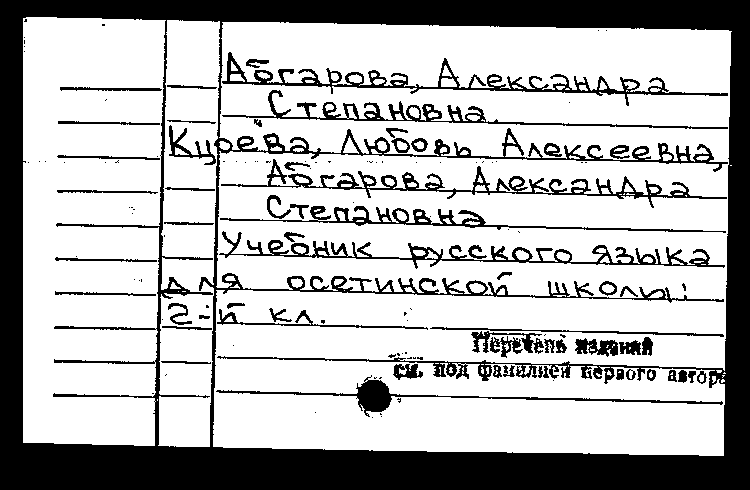 Абгарова, Александра
Степановна.
Кцоева, Любовь Алексеевна,
Абгарова, Александра
Степановна.
Учебник русского языка
для осетинской школы:
2-й кл.
Перечень изданий
см. под фамилией первого автора